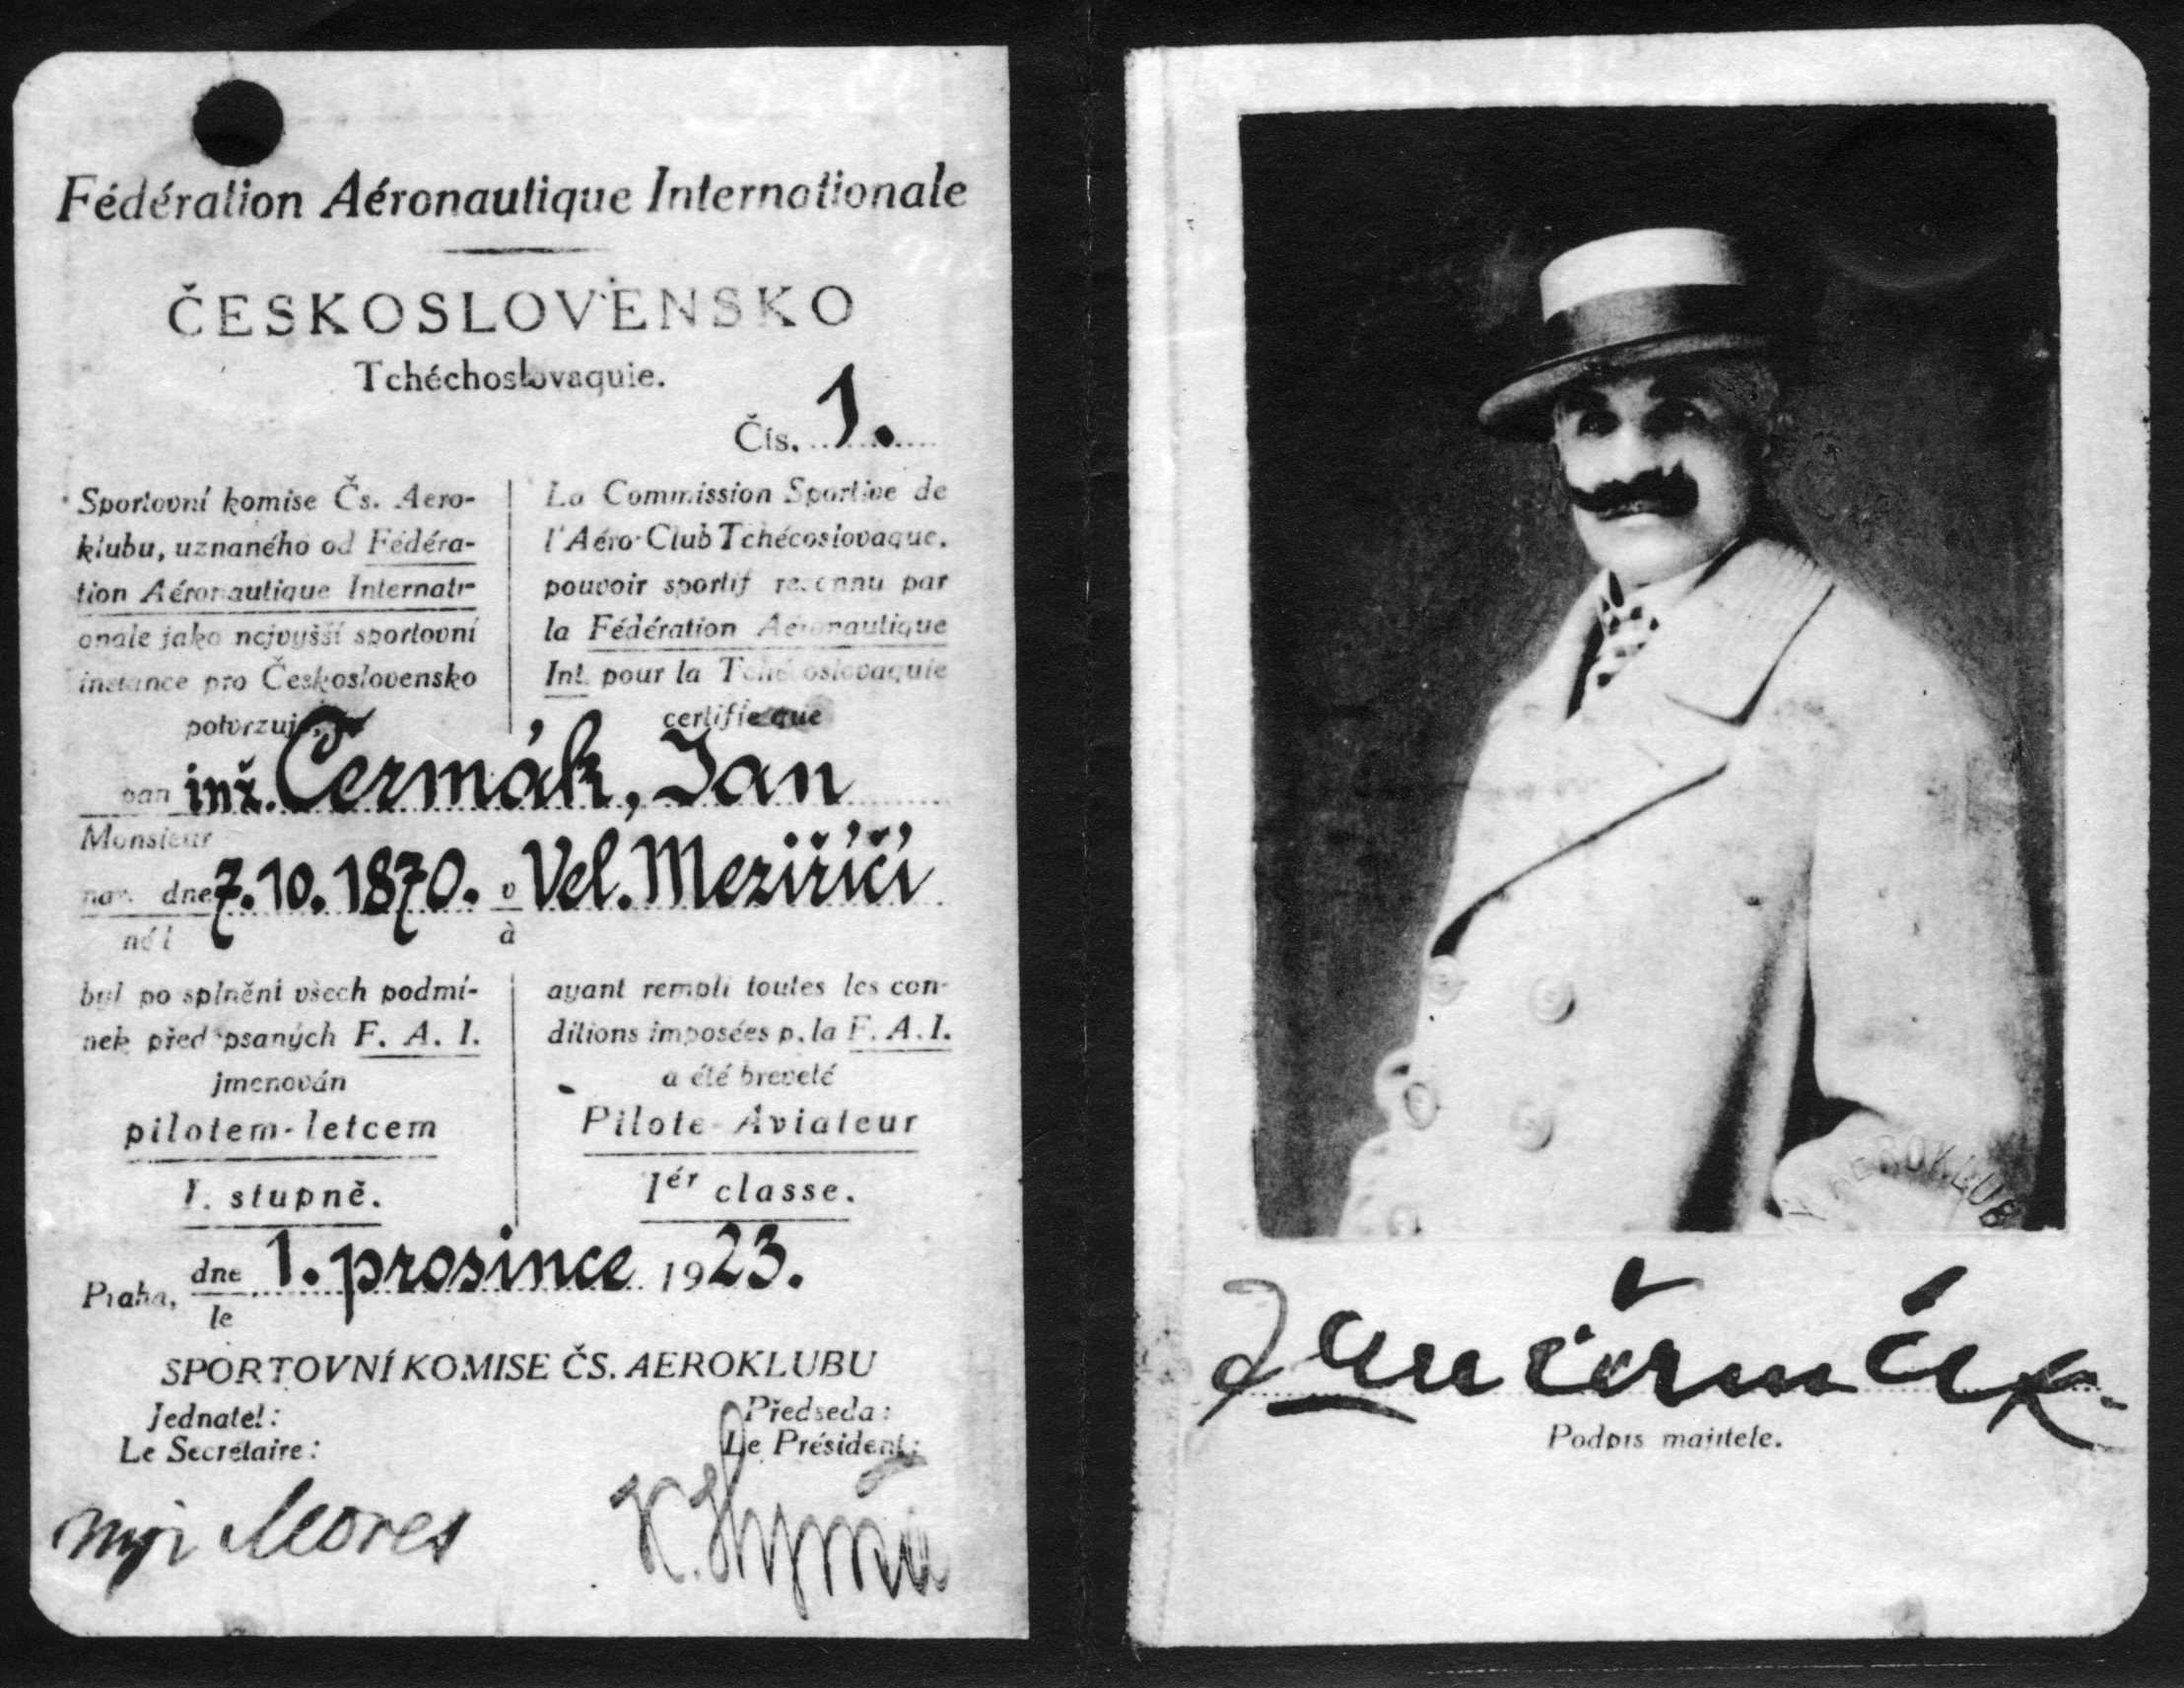 Fédération Aéronautique Internationale
ČESKOSLOVENSKO
Tchéchoslovaquie.
Čís. 1.
Sportovní komise Čs. Aero-
klubu, uznaného od Fédéra-
tion Aéronautique Internati-
onale jako nejvyšší sportovní
instance pro Československo
potvrzuje,
La Commission Sportive de
l'Aéro-Club Tchécoslovaque,
pouvoir sportif reconnu par
la Fédération Aéronautique
Int. pour la Tchécoslovaquie
certifie que
pan inž. Čermák, Jan
Monsieur
nar. dne 7. 10. 1870. v Vel. Meziříčí
né l à
byl po splnění všech podmí-
nek předepsaných F. A. I.
jmenován
pilotem-letcem
I. stupně.
ayant rempli toutes les con-
ditions imposées p. la F. A. I.
a été breveté
Pilote-Aviateur
1ér classe.
Praha, dne 1. prosince 1923.
le
SPORTOVNÍ KOMISE ČS. AEROKLUBU
Jednatel: Předseda:
Le Secrétaire: Le Président:
Mores
AEROKLUB
Jan Čermák
Podpis majitele.